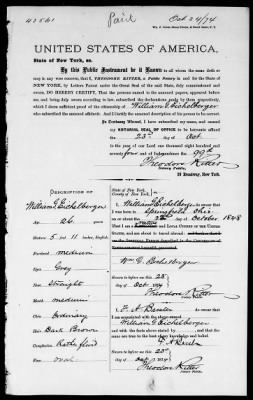 43561 Paid Oct 24/74
UNITED STATES OF AMERICA,
State of New York, ss.
By this Public Instrument be it Known to all whom the same doth or
may in any wise concern, that I, THEODORE RITTER, a Public Notary in and for the State of
NEW YORK, by Letters Patent under the Great Seal of the said State, duly commissioned and
sworn, DO HEREBY CERTIFY, that the persons named in the annexed papers, appeared before
me, and being duly sworn according to law, subscribed the declarations made by them respectively,
which I deem sufficient proof of the citizenship of William G Eichelberger
who subscribed the annexed affidavit. And I further certify the annexed description of his person to be correct.
In Testimony Whereof, I have subscribed my name, and caused my
NOTARIAL SEAL OF OFFICE to be hereunto affixed
the 23d day of Oct
in the year of our Lord one thousand eight hundred and
seventy four of Independence the 99th
Theodore Ritter
Notary Public,
Broadway, New York.
DESCRIPTION OF
William G Eichelberger
Age 26 years
Stature 5 feet 11 inches, English
medium
Eyes Grey
Nose Straight
Mouth medium
Chin Ordinary
Hair Dark Brown
Complexion Rather florid
Face oval
State of New York,
County of New York,
I William G Eichelberger
was born in Springfield Ohio
on or about the day of October 1848
that I am a and LOYAL CITIZEN of the UNITED
STATES, and am about to travel abroad.
Wm G. Eichelberger
Sworn to before me this 23
day of Oct 1874
Theodore Ritter
Notary Public.
I
am acquainted with the above-named
William G Eichelberger
and with the facts above stated by him
Sworn to before me this 23
day of Oct 1874
Theodore Ritter
Notary Public.